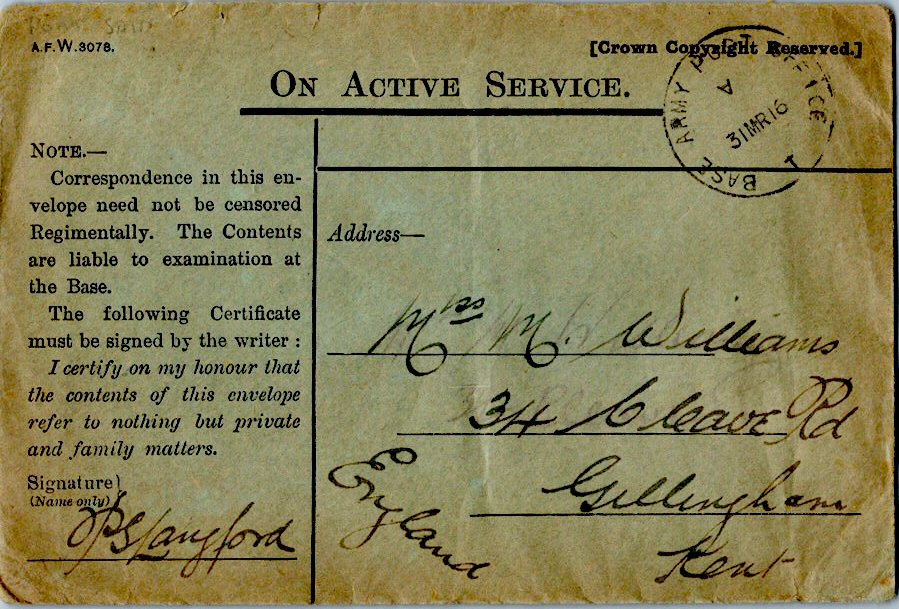 A.F.W.3078.
[Crown Copyright Reserved.]
ON ACTIVE SERVICE.
BASE ARMY POST OFFICE 1
A
31 MR 16
NOTE.—
Correspondence in this en-
velope need not be censored
Regimentally. The Contents
are liable to examination at
the Base.
The following Certificate
must be signed by the writer :
I certify on my honour that
the contents of this envelope
refer to nothing but private
and family matters.
Signature}
(Name only)
Langford
Address—
Mrs M. Williams
34 Cleave Rd
Gillingham
Kent
England